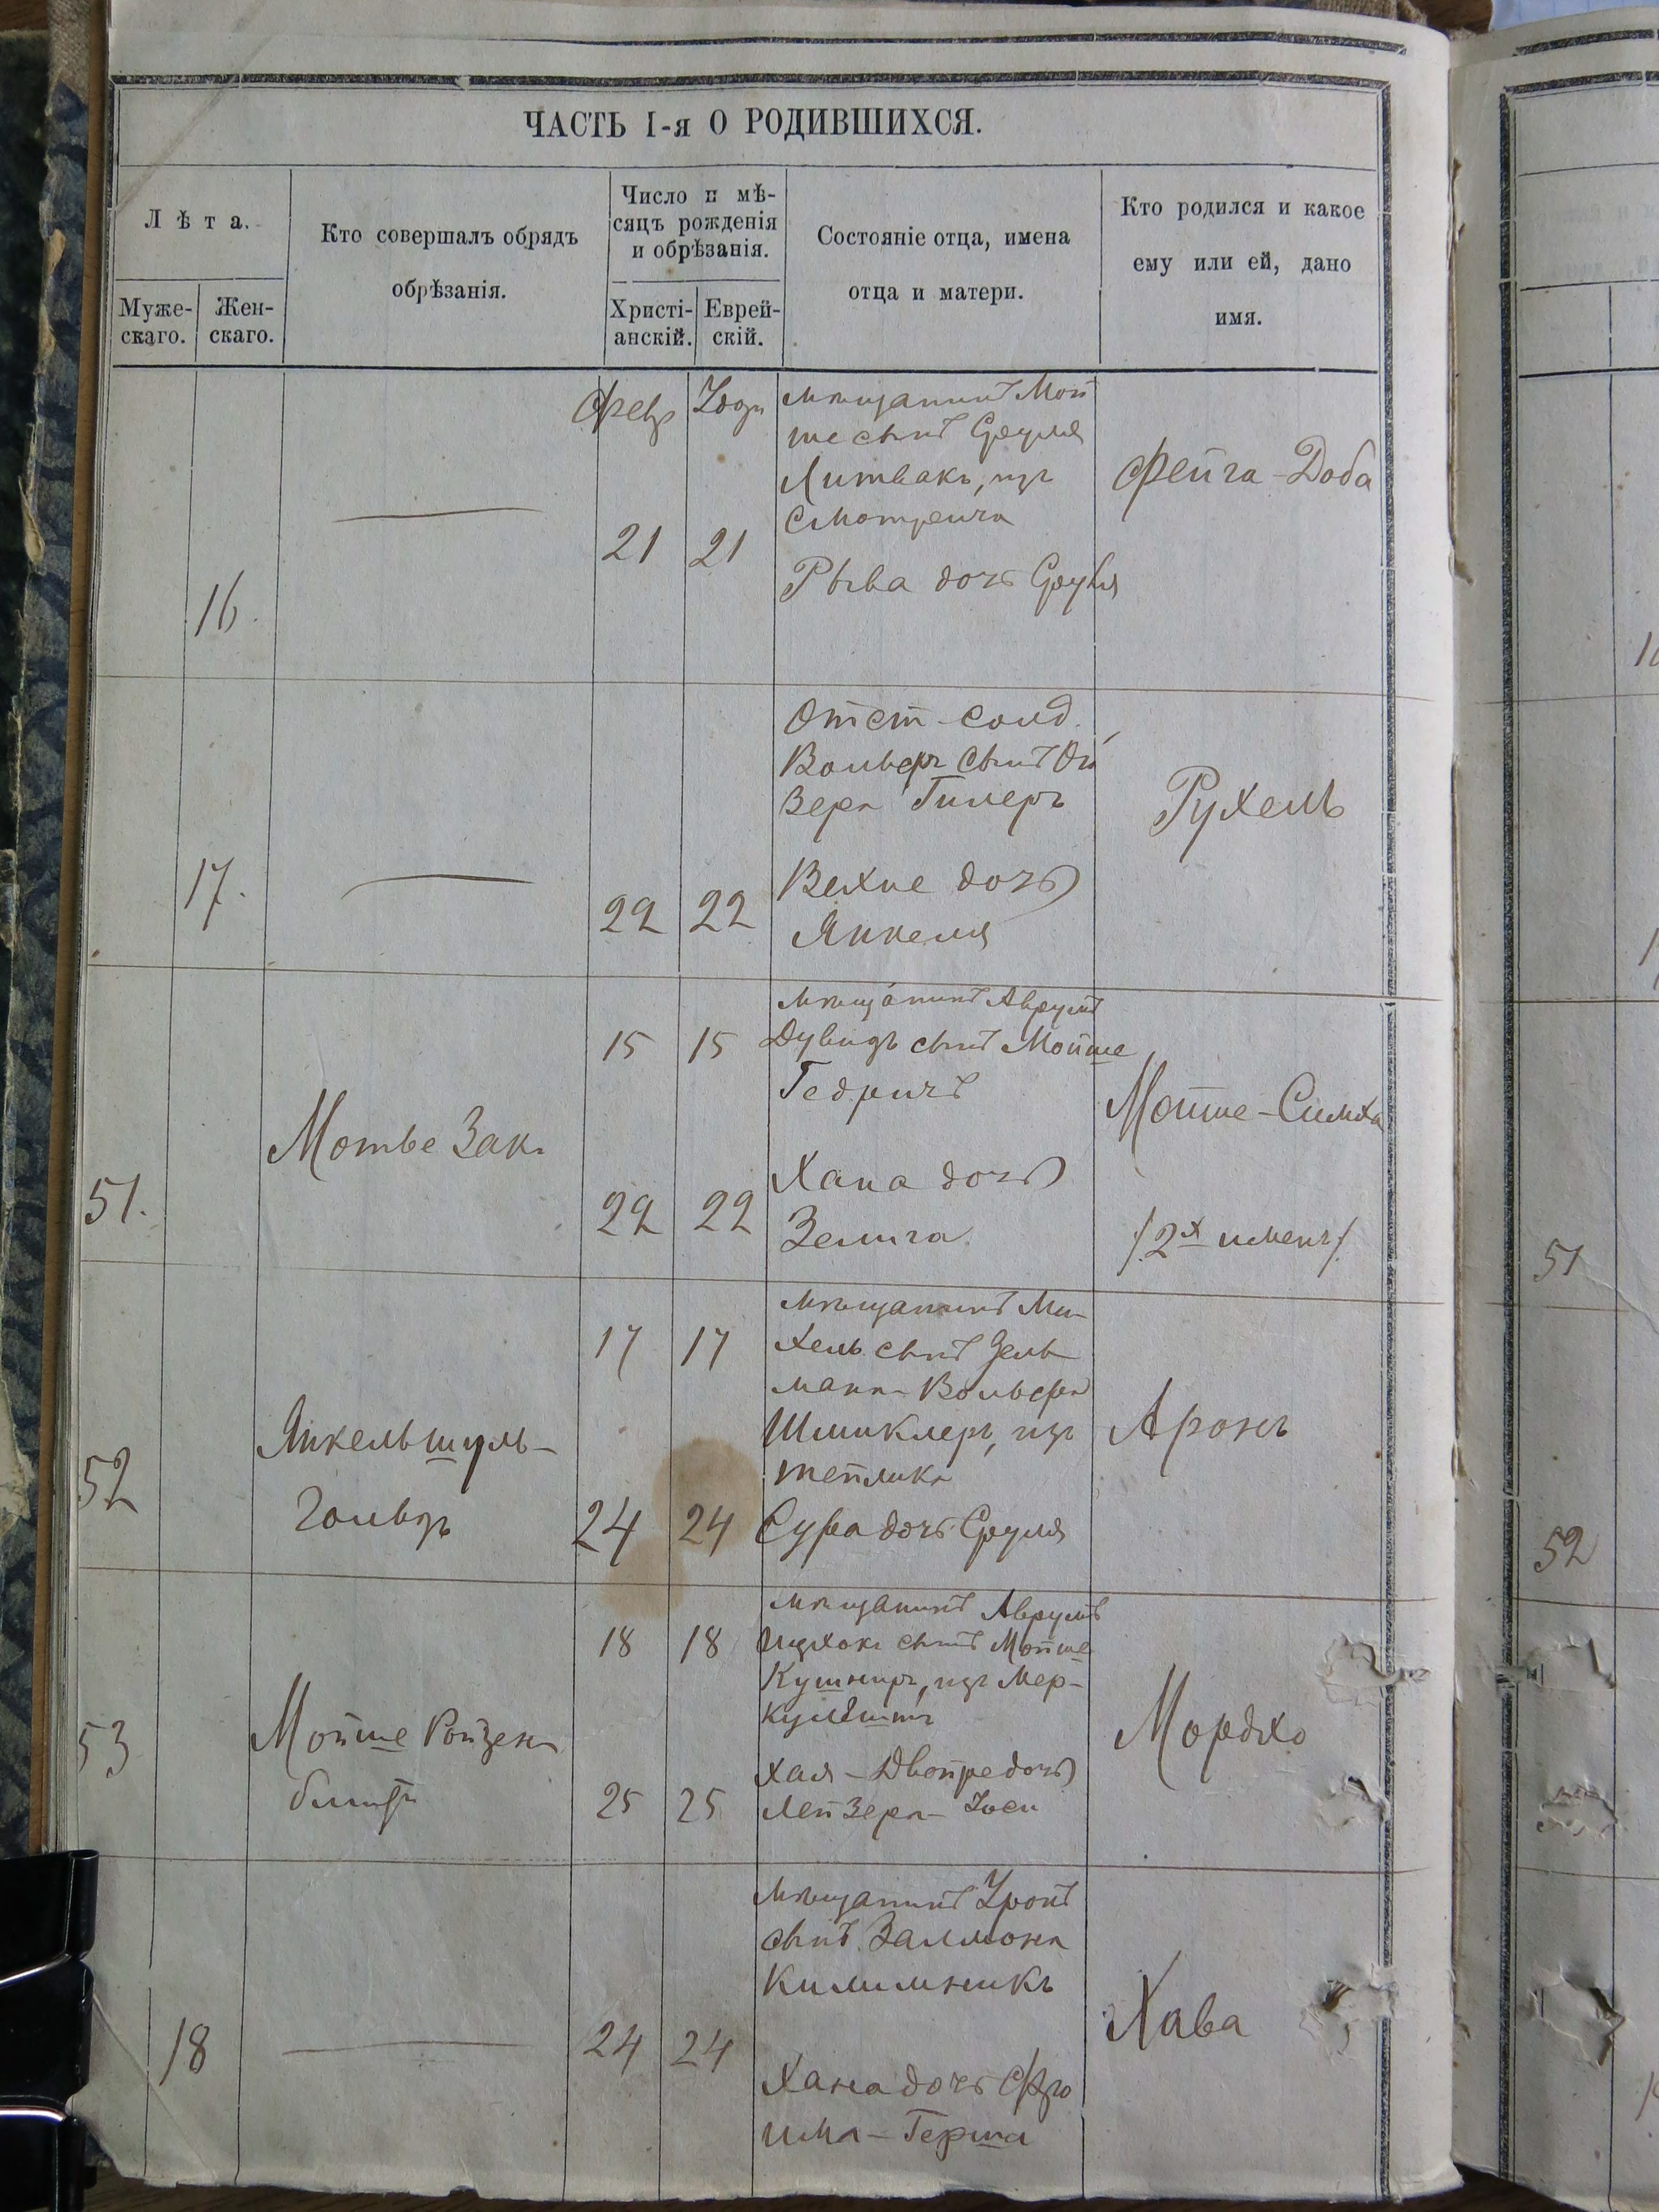 ЧАСТЬ I-я О РОДИВШИХСЯ.
Лѣта.
Муже-
скаго.
Жен-
скаго.
Кто совершалъ обрядъ
обрѣзанія.
Число и мѣ-
сяцъ рожденія
и обрѣзанія.
Христі-
анскій.
Еврей-
скій.
Состояніе отца, имена
отца и матери.
Кто родился и какое
ему или ей, дано
имя.
16.
Февр
21
21
мѣщанинъ Мой
ше сынъ Сруля
Литвакъ, изъ
Смотрича
Рыва дочь Сруля
Фейга-Доба
17.
22
22
Отст-солд.
Вольфъ сынъ Ой
Зера Гилеръ
Вихне дочь
Янкеля
Рухель
51.
Мотье Зак.
15
15
22
22
мѣщанинъ Аврумъ
Дувидъ сынъ Мойше
Гедричъ
Хана дочь
Зелига
Мойше-Симха
/2х именъ/
52
Янкель Шуль-
Гольдъ
17
17
24
24
мѣщанинъ Ми-
хель сынъ Зель-
мана-Вольфа
Шмиклеръ, изъ
теплика
Сура дочь Сруля
Аронъ
53
Мойше Ройзен
блитъ
18
18
25
25
мѣщанинъ Аврумъ
Ицхокъ сынъ Мойше
Кушниръ, изъ Мер-
Хая-Двойре дочь
Лейзера-Іоси
Мордхо
18
24
24
мѣщанинъ Уронъ
сынъ Залмона
Килимникъ
Хана дочь Фро
има-Герша
Хава
51
52